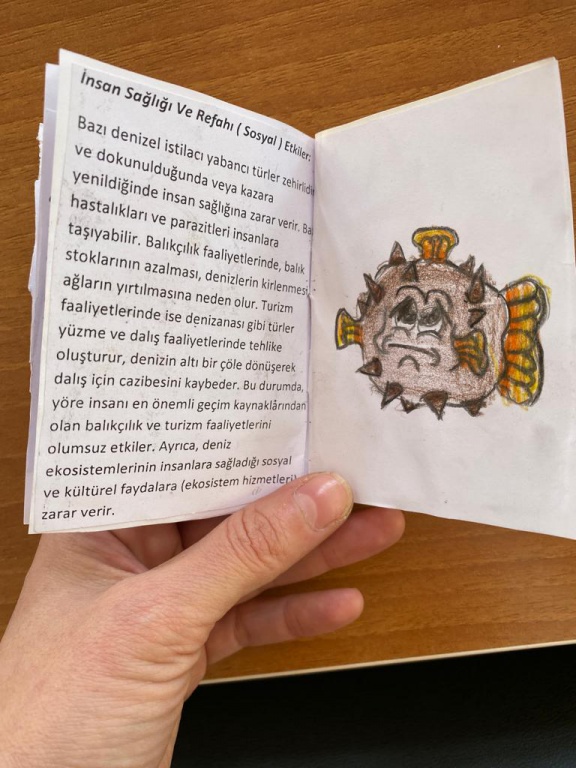 İnsan Sağlığı Ve Refahı ( Sosyal ) Etkiler:
Bazı denizel istilacı yabancı türler zehirlidir
ve dokunulduğunda veya kazara
yenildiğinde insan sağlığına zarar verir.
hastalıkları ve parazitleri insanlara
taşıyabilir. Balıkçılık faaliyetlerinde, balık
stoklarının azalması, denizlerin kirlenmesi
ağların yırtılmasına neden olur. Turizm
faaliyetlerinde ise denizanası gibi türler
yüzme ve dalış faaliyetlerinde tehlike
oluşturur, denizin altı bir çöle dönüşerek
dalış için cazibesini kaybeder. Bu durumda,
yöre insanı en önemli geçim kaynaklarından
olan balıkçılık ve turizm faaliyetlerini
olumsuz etkiler. Ayrıca, deniz
ekosistemlerinin insanlara sağladığı sosyal
ve kültürel faydalara (ekosistem hizmetleri)
zarar verir.